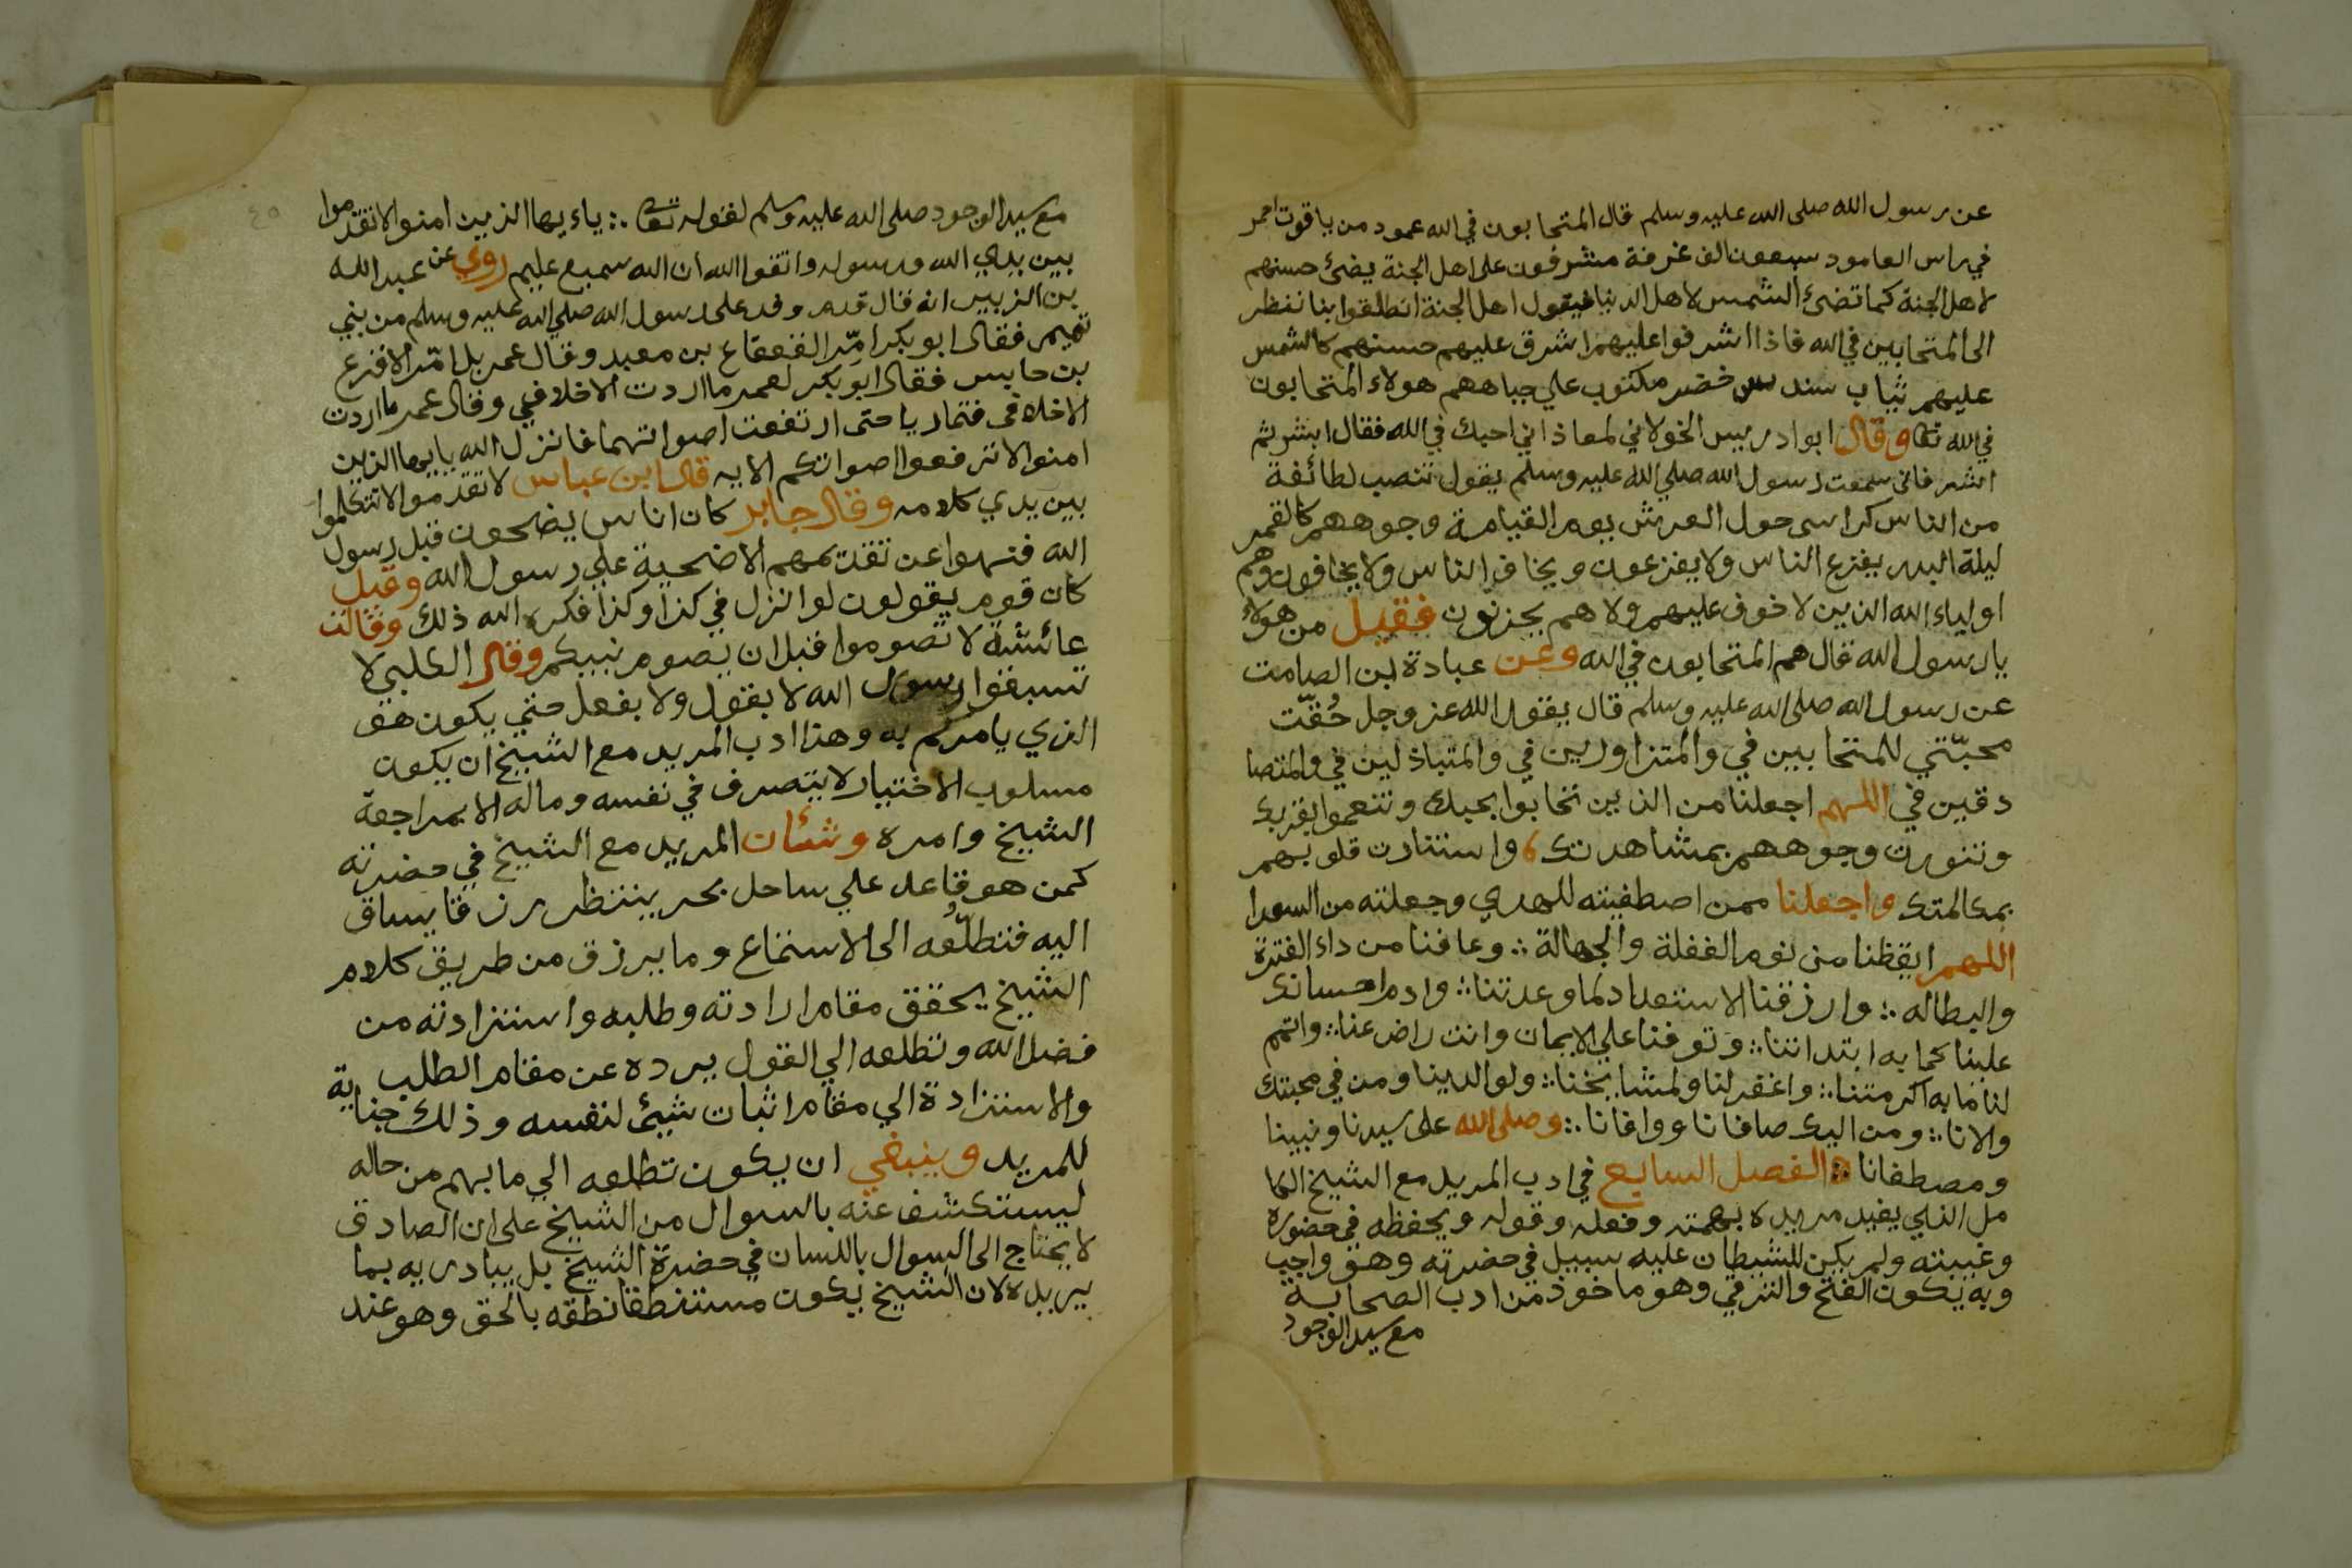 عن رسول الله صلى الله عليه وسلم قال المتحابون في الله عمود من ياقوت احمر
في راس العامود سبعون الف غرفة مشرفون على اهل الجنة يضئ حسنهم
لاهل الجنة كما تضئ الشمس لاهل الدنيا فيقول اهل الجنة انطلقوا بنا ننظر
الى المتحابين في الله فاذا اشرفوا عليهم اشرق عليهم حسنهم كالشمس
عليهم ثياب سندس خضر مكتوب علي جباههم هولاء المتحابون
في الله تعا وقال ابوا دريس الخولاني لمعاذ اني احبك في الله فقال ابشر ثم
ابشر فاني سمعت رسول الله صلي الله عليه وسلم يقول تنصب لطائفة
من الناس كراسى حول العرش يوم القيامة وجوههم كالقمر
ليلة البدر يفزع الناس ولا يفزعون ويخاف الناس ولا يخافون وهم
اولياء الله الذين لا خوف عليهم ولا هم يحزنون فقيل من هولاء
يا رسول الله قال هم المتحابون في الله وعن عبادة ابن الصامت
عن رسول الله صلى الله عليه وسلم قال يقول الله عز وجل حُقّت
محبّتي للمتحابين في والمتزاورين في والمتباذلين في والمتصا
دقين في اللهم اجعلنا من الذين تحابوا بحبك وتنعموا بقربك
وتنورت وجوههم بمشاهدتك واستنارت قلوبهم
بمكالمتك واجعلنا ممن اصطفيته للهدي وجعلته من السعدا
اللهم ايقظنا من نوم الغفلة والجهالة ؞ وعافنا من داء الفترة
والبطاله ؞ وارزقنا الاستعداد لما وعدتنا ؞ وادم احسانك
علينا كما به ابتداتنا ؞ وتوفنا علي الايمان وانت راض عنا ؞ واتمم
لنا ما به اكرمتنا ؞ واغفر لنا ولمشايخنا ؞ ولوالدينا ومن في محبتك
والانا ؞ ومن اليك صافانا ووافانا ؞ وصلى الله على سيدنا ونبينا
ومصطفانا الفصل السابع في ادب المريد مع الشيخ الكا
مل الذي يفيد مريده بهمته وفعله وقوله ويحفظه في حضوره
وغيبته ولم يكن للشيطان عليه سبيل في حضرته وهو واجب
وبه يكون الفتح والترقي وهو ماخوذ من ادب الصحابة
مع سيد الوجود
مع سيد الوجود صلى الله عليه وسلم لقوله تعا ؞ ياءيها الذين امنوا لا تقدموا
بين يدي الله ورسوله واتقوا الله ان الله سميع عليم روي عن عبد الله
بن الزبير انه قال قدم وفد على رسول الله صلي الله عليه وسلم من بني
تميم فقال ابو بكر امّر القعقاع بن معبد وقال عمر بل امّر الاقرع
بن حابس فقال ابو بكر لعمر ما اردت الا خلافي وقال عمر ما اردت
الا خلافى فتماريا حتى ارتفعت اصواتهما فانزل الله يايها الذين
امنوا لا ترفعوا اصواتكم الايه قال ابن عباس لا تقدموا لا تتكلموا
بين يدي كلامه وقال جابر كان اناس يضحون قبل رسول
الله فنهوا عن تقديمهم الاضحية علي رسول الله وقيل
كان قوم يقولون لو انزل في كذا وكذا فكره الله ذلك وقالت
عائشة لا تصوموا قبل ان يصوم نبيكم وقال الكلبي لا
تسبقوا رسول الله لا بقول ولا بفعل حتي يكون هو
الذي يامركم به وهذا ادب المريد مع الشيخ ان يكون
مسلوب الاختيار لا يتصرف في نفسه وماله الا بمراجعة
الشيخ وامره وشئان المريد مع الشيخ في حضرته
كمن هو قاعد علي ساحل بحر ينتظر رزقا يساق
اليه فتطلّعُه الى الاستماع وما يرزق من طريق كلام
الشيخ يحقق مقام ارادته وطلبه واستزادته من
فضل الله وتطلعه الي القول يرده عن مقام الطلب
والاستزادة الي مقام اثبات شيئ لنفسه وذلك جناية
للمريد وينبغي ان يكون تطلعه الي مابهم من حاله
ليستكشف عنه بالسوال من الشيخ على ان الصادق
لا يحتاج الى السوال باللسان في حضرة الشيخ بل يباديه بما
يريده لان الشيخ يكون مستنطقا نطقه بالحق وهو عند